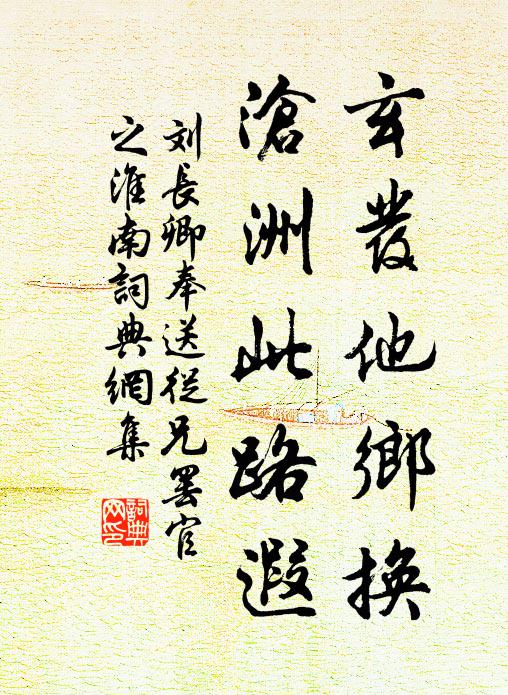 玄發他鄉換
滄洲此路遐
刘長卿奉送從兄罢官
之淮南詞典網集
詞典網印